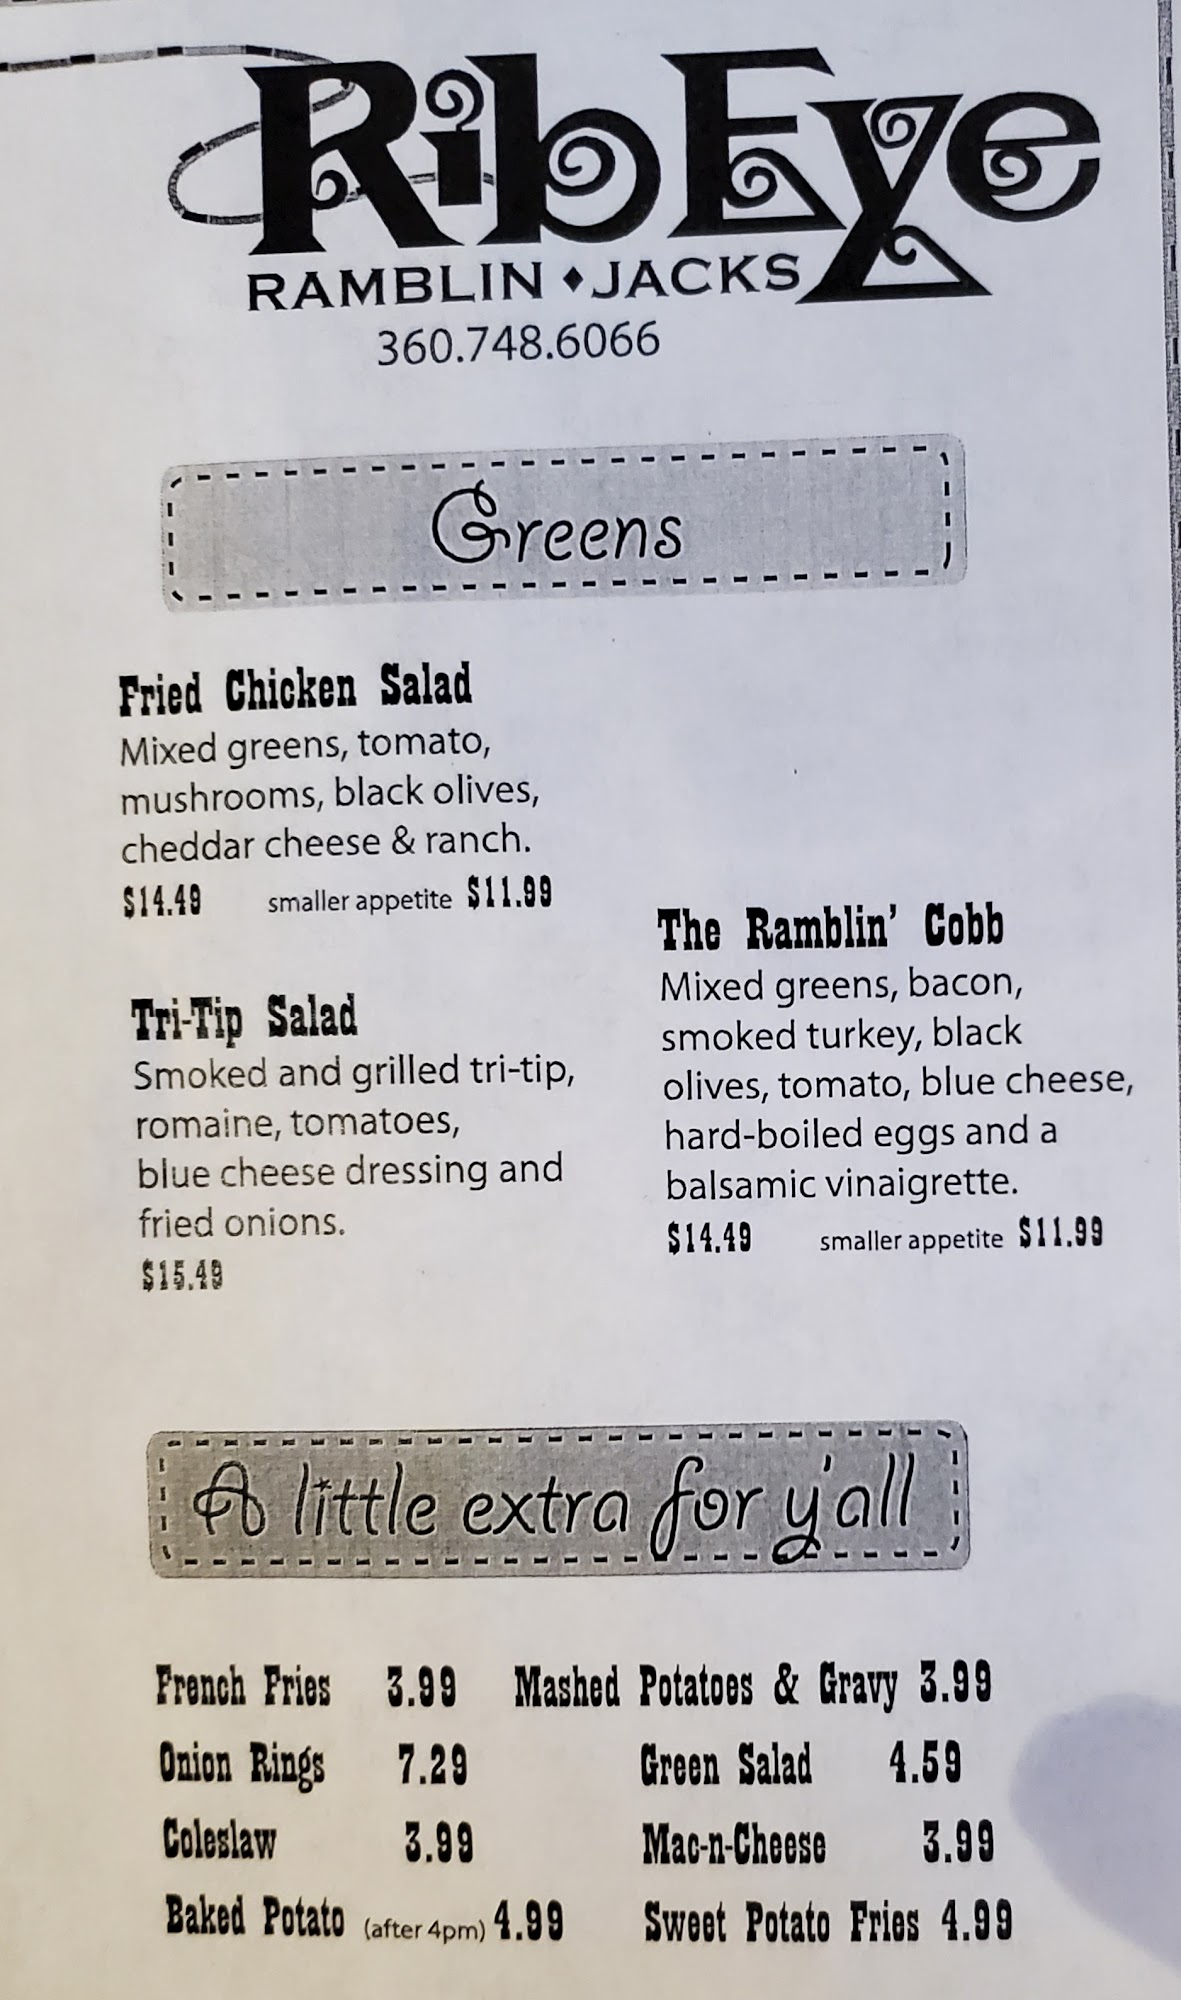 RibEye
RAMBLIN ♦ JACKS
360.748.6066
Greens
Fried Chicken Salad
Mixed greens, tomato,
mushrooms, black olives,
cheddar cheese & ranch.
$14.49 smaller appetite $11.99
Tri-Tip Salad
Smoked and grilled tri-tip,
romaine, tomatoes,
blue cheese dressing and
fried onions.
$15.49
The Ramblin' Cobb
Mixed greens, bacon,
smoked turkey, black
olives, tomato, blue cheese,
hard-boiled eggs and a
balsamic vinaigrette.
$14.49 smaller appetite $11.99
A little extra for y'all
French Fries 3.99 Mashed Potatoes & Gravy 3.99
Onion Rings 7.29 Green Salad 4.59
Coleslaw 3.99 Mac-n-Cheese 3.99
Baked Potato (after 4pm) 4.99 Sweet Potato Fries 4.99